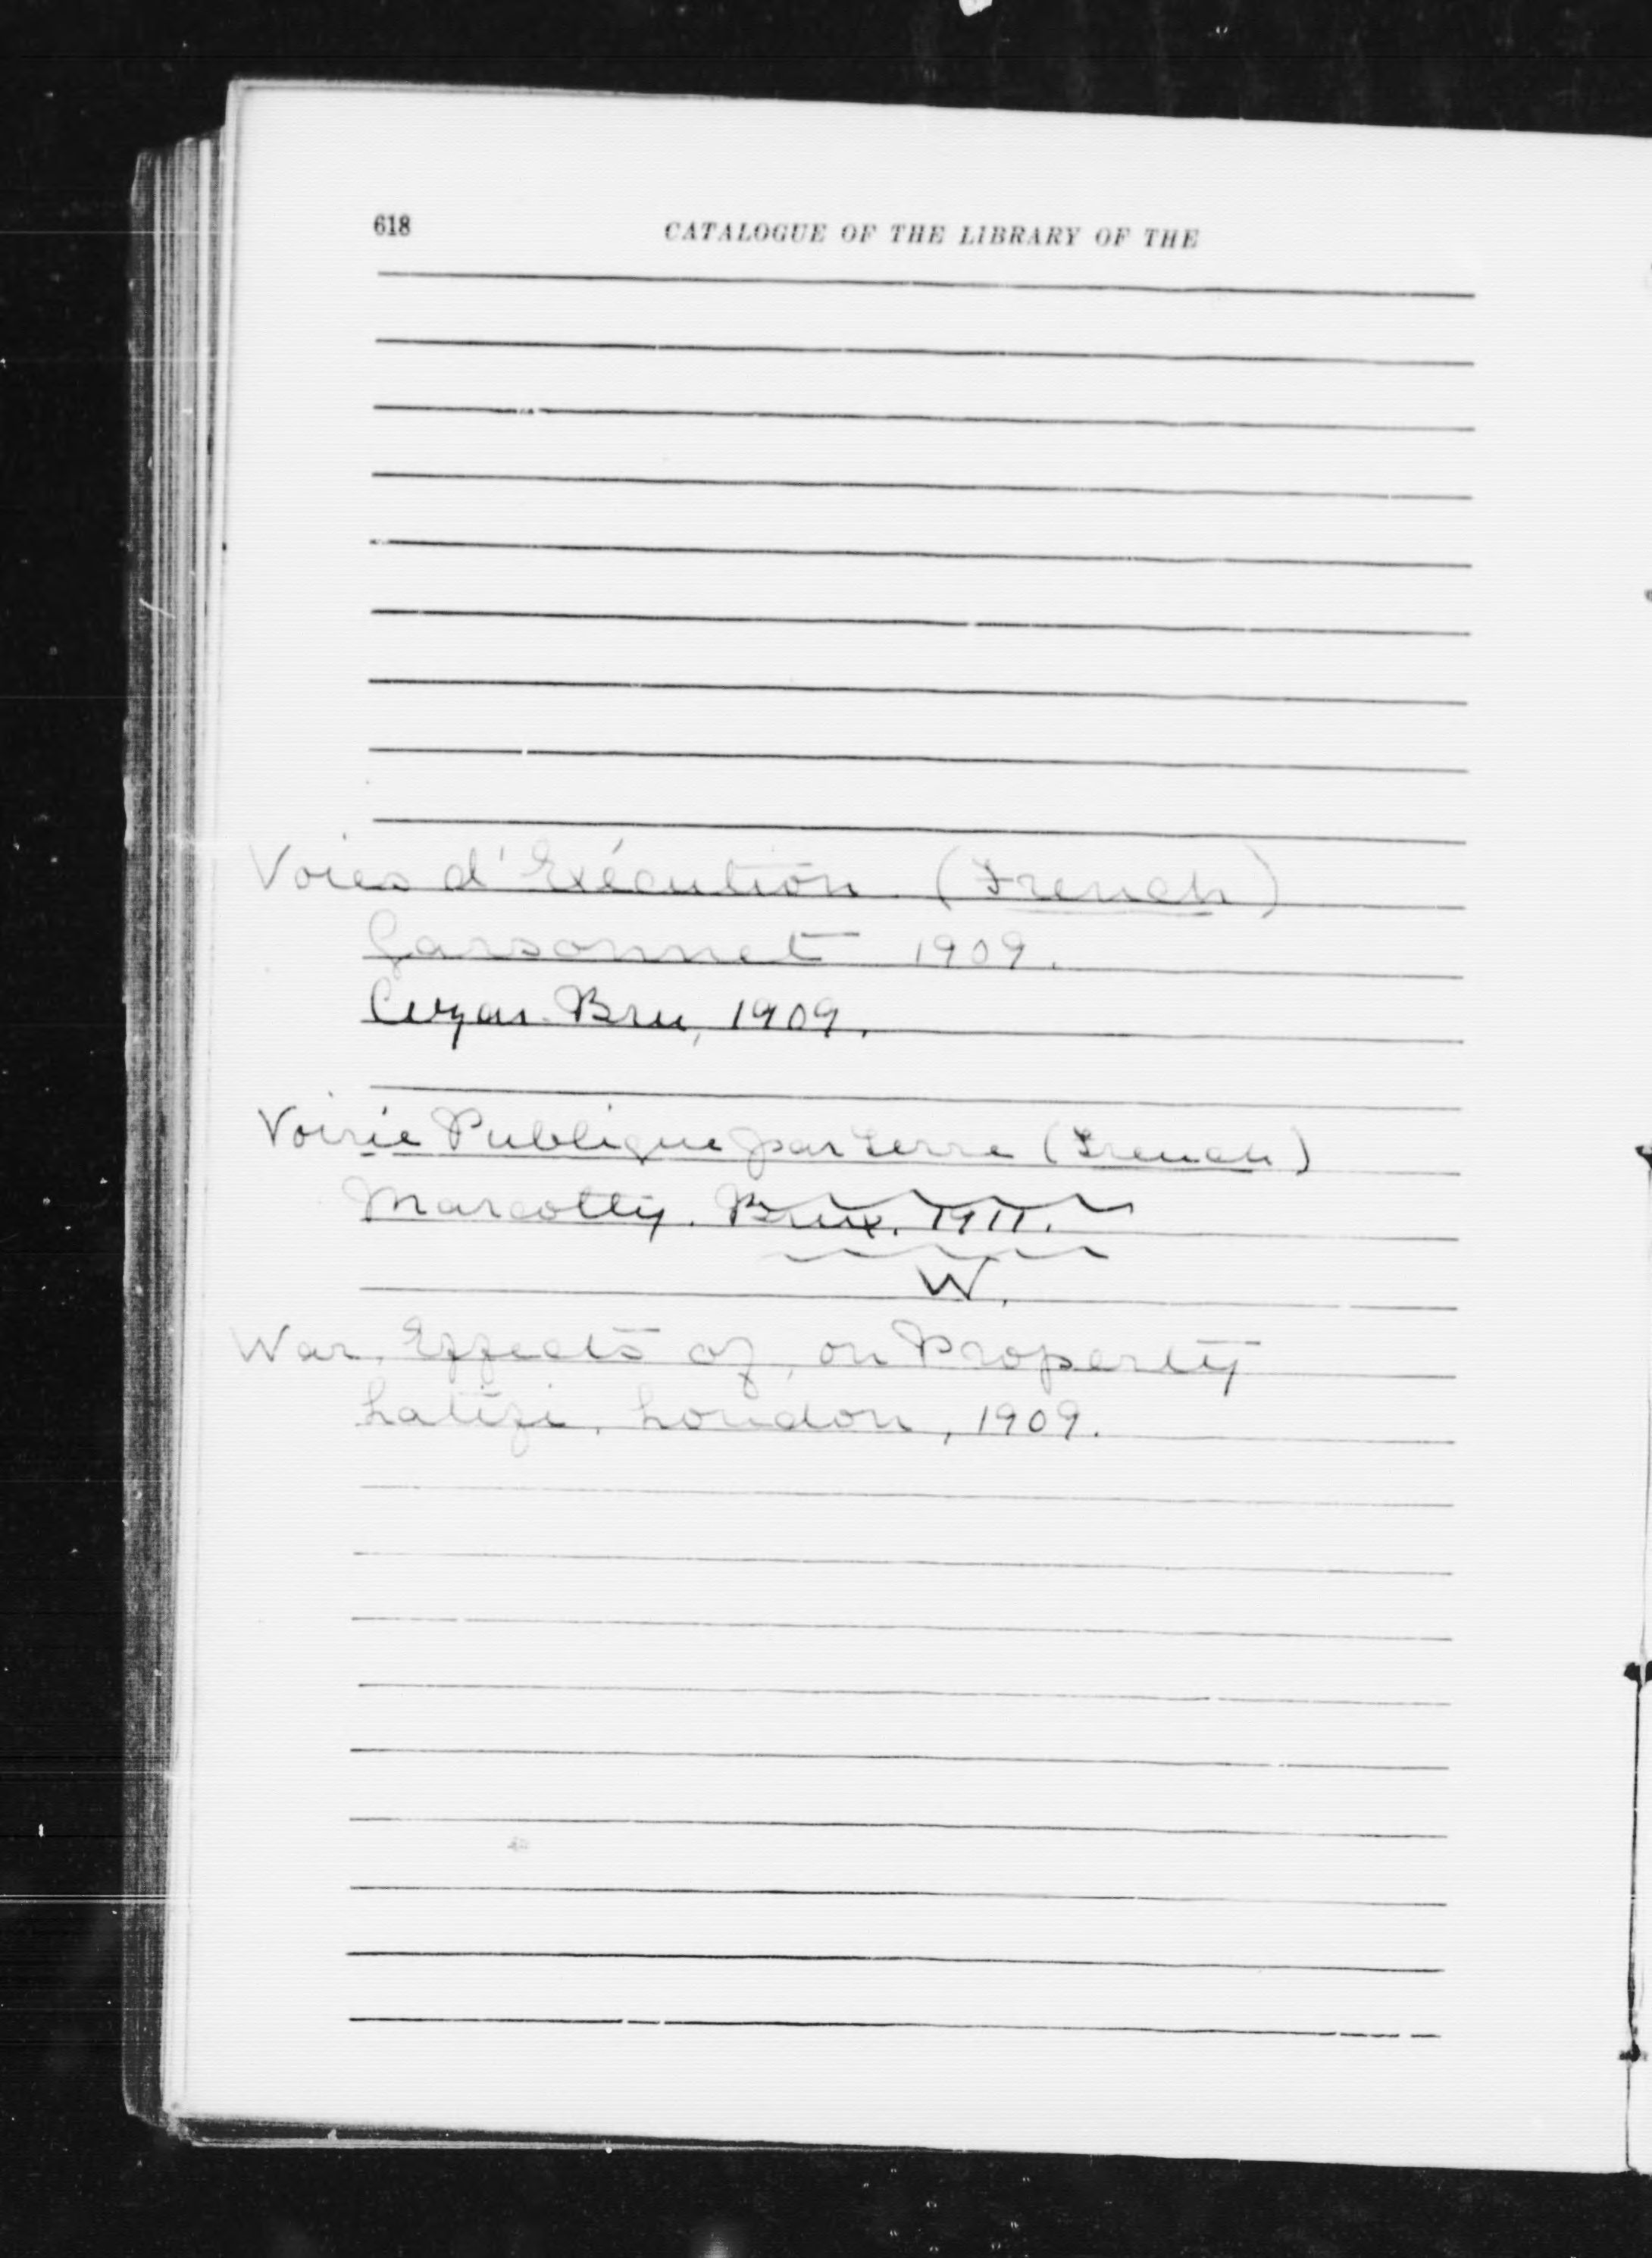 618 CATALOGUE OF THE LIBRARY OF THE
Voies d'Exécution (French)
Garsonnet 1909.
Cezar-Bru, 1909.
Voirie Publique par terre (French)
Marcotty. Brux. 1911.
W.
War, Effects of, on Property
Latifi, London, 1909.